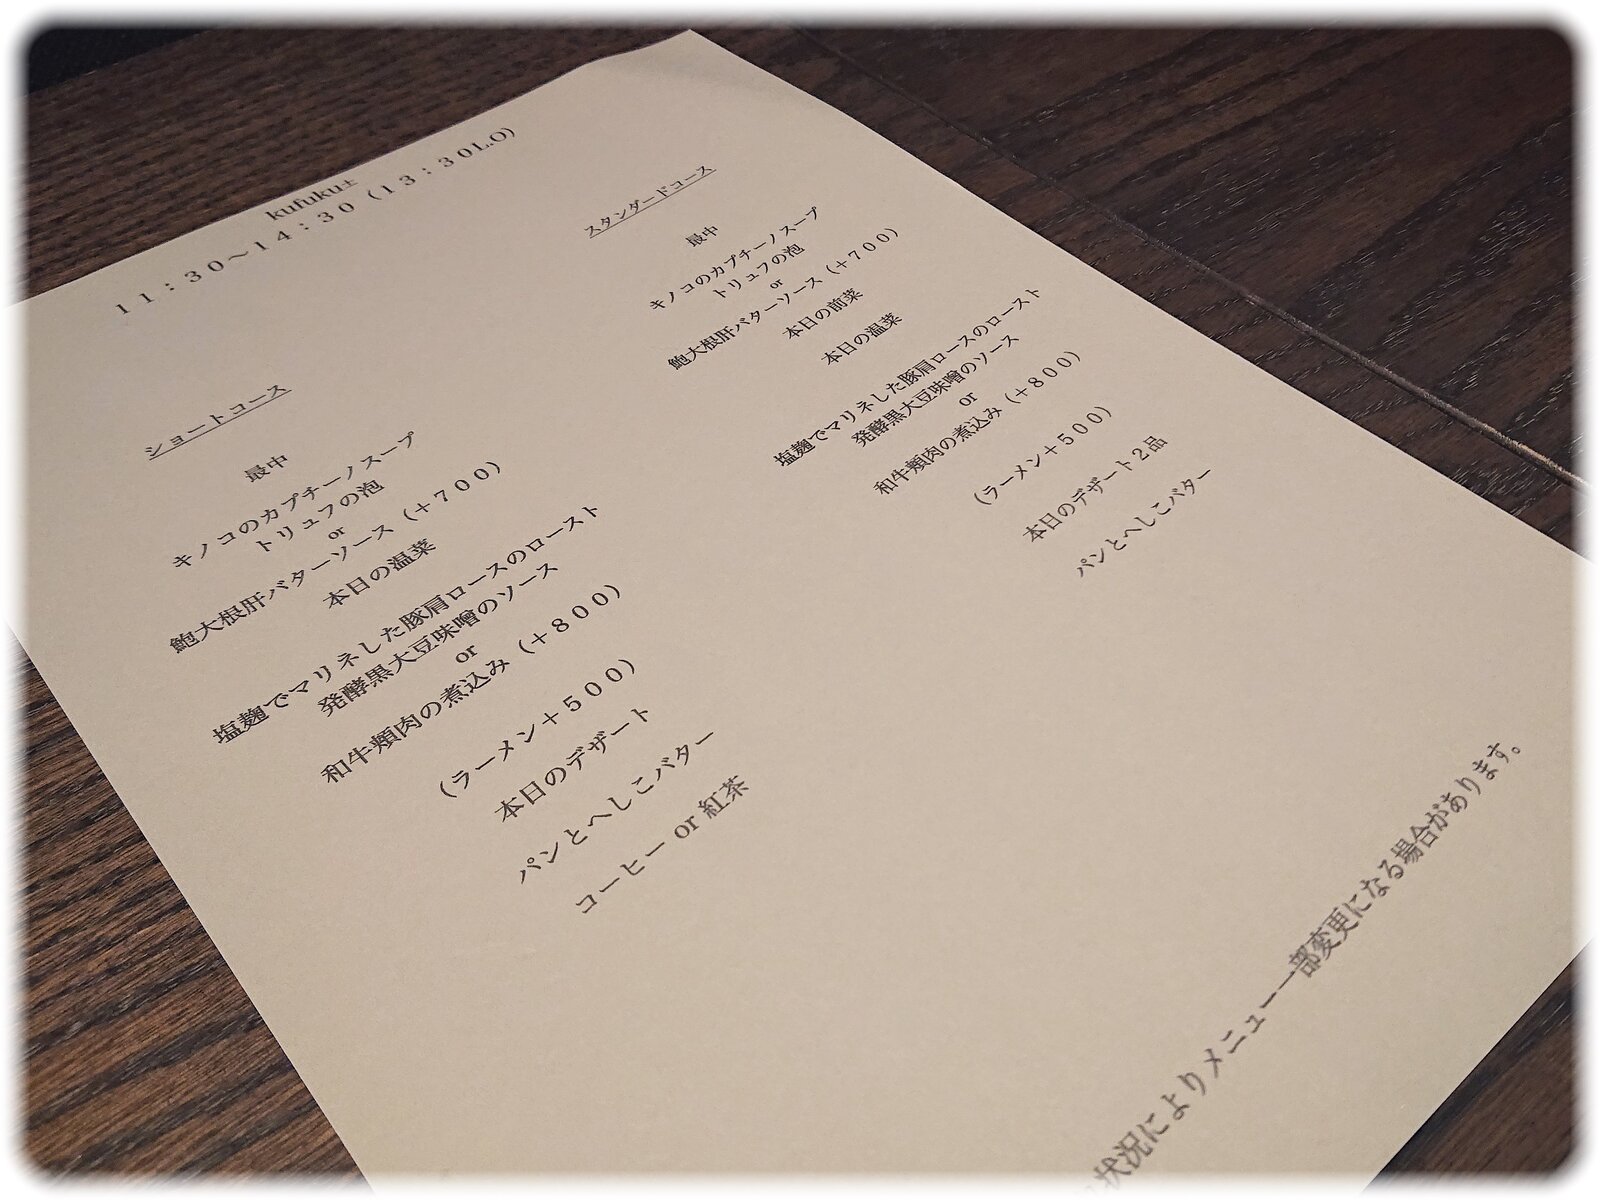 kufuku±
11:30～14:30(13:30LO)
ショートコース
最中
キノコのカプチーノスープ
トリュフの泡
or
鮑大根肝バターソース(+700)
本日の温菜
塩麹でマリネした豚肩ロースのロースト
発酵黒大豆味噌のソース
or
和牛頬肉の煮込み(+800)
(ラーメン+500)
本日のデザート
パンとへしこバター
コーヒー or 紅茶
スタンダードコース
最中
キノコのカプチーノスープ
トリュフの泡
or
鮑大根肝バターソース(+700)
本日の前菜
本日の温菜
塩麹でマリネした豚肩ロースのロースト
発酵黒大豆味噌のソース
or
和牛頬肉の煮込み(+800)
(ラーメン+500)
本日のデザート2品
パンとへしこバター
状況によりメニュー一部変更になる場合があります。